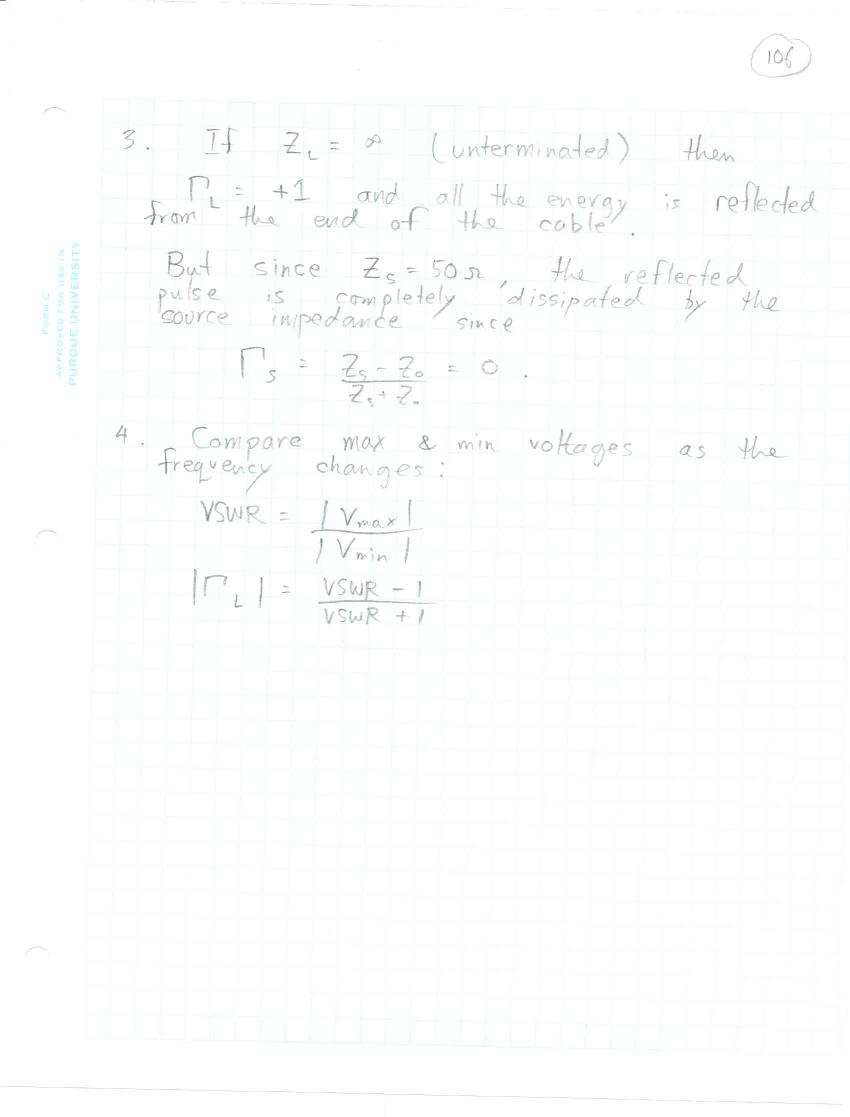 106
3. If Z_L = ∞ (unterminated) then
Γ_L = +1 and all the energy is reflected
from the end of the cable.
But since Z_S = 50Ω, the reflected
pulse is completely dissipated by the
source impedance since
Γ_S = (Z_S - Z_0)/(Z_S + Z_0) = 0.
4. Compare max & min voltages as the
frequency changes:
VSWR = |Vmax|/|Vmin|
|Γ_L| = (VSWR - 1)/(VSWR + 1)
FORM C
APPROVED FOR USE IN
PURDUE UNIVERSITY